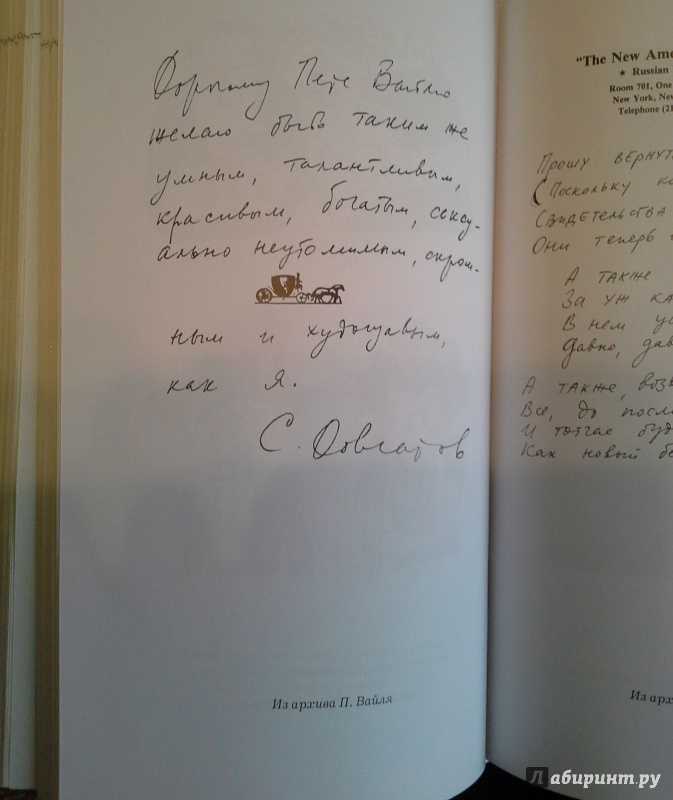 Дорогому Пете Вайлю
желаю быть таким же
умным, талантливым,
красивым, богатым, сексу-
ально неутомимым, скром-
ным и худощавым,
как я.
С. Довлатов
Из архива П. Вайля
"The New Ame
★ Russian
Room 701, One
New York, New
Telephone (21
Прошу вернуть
(Поскольку
Свидетельства
Они теперь
А также
За уж
В нем
Давно, дав
А также, возв
Все, до посл
И тотчас буд
Как новый бе
Из арх
Лабиринт.ру